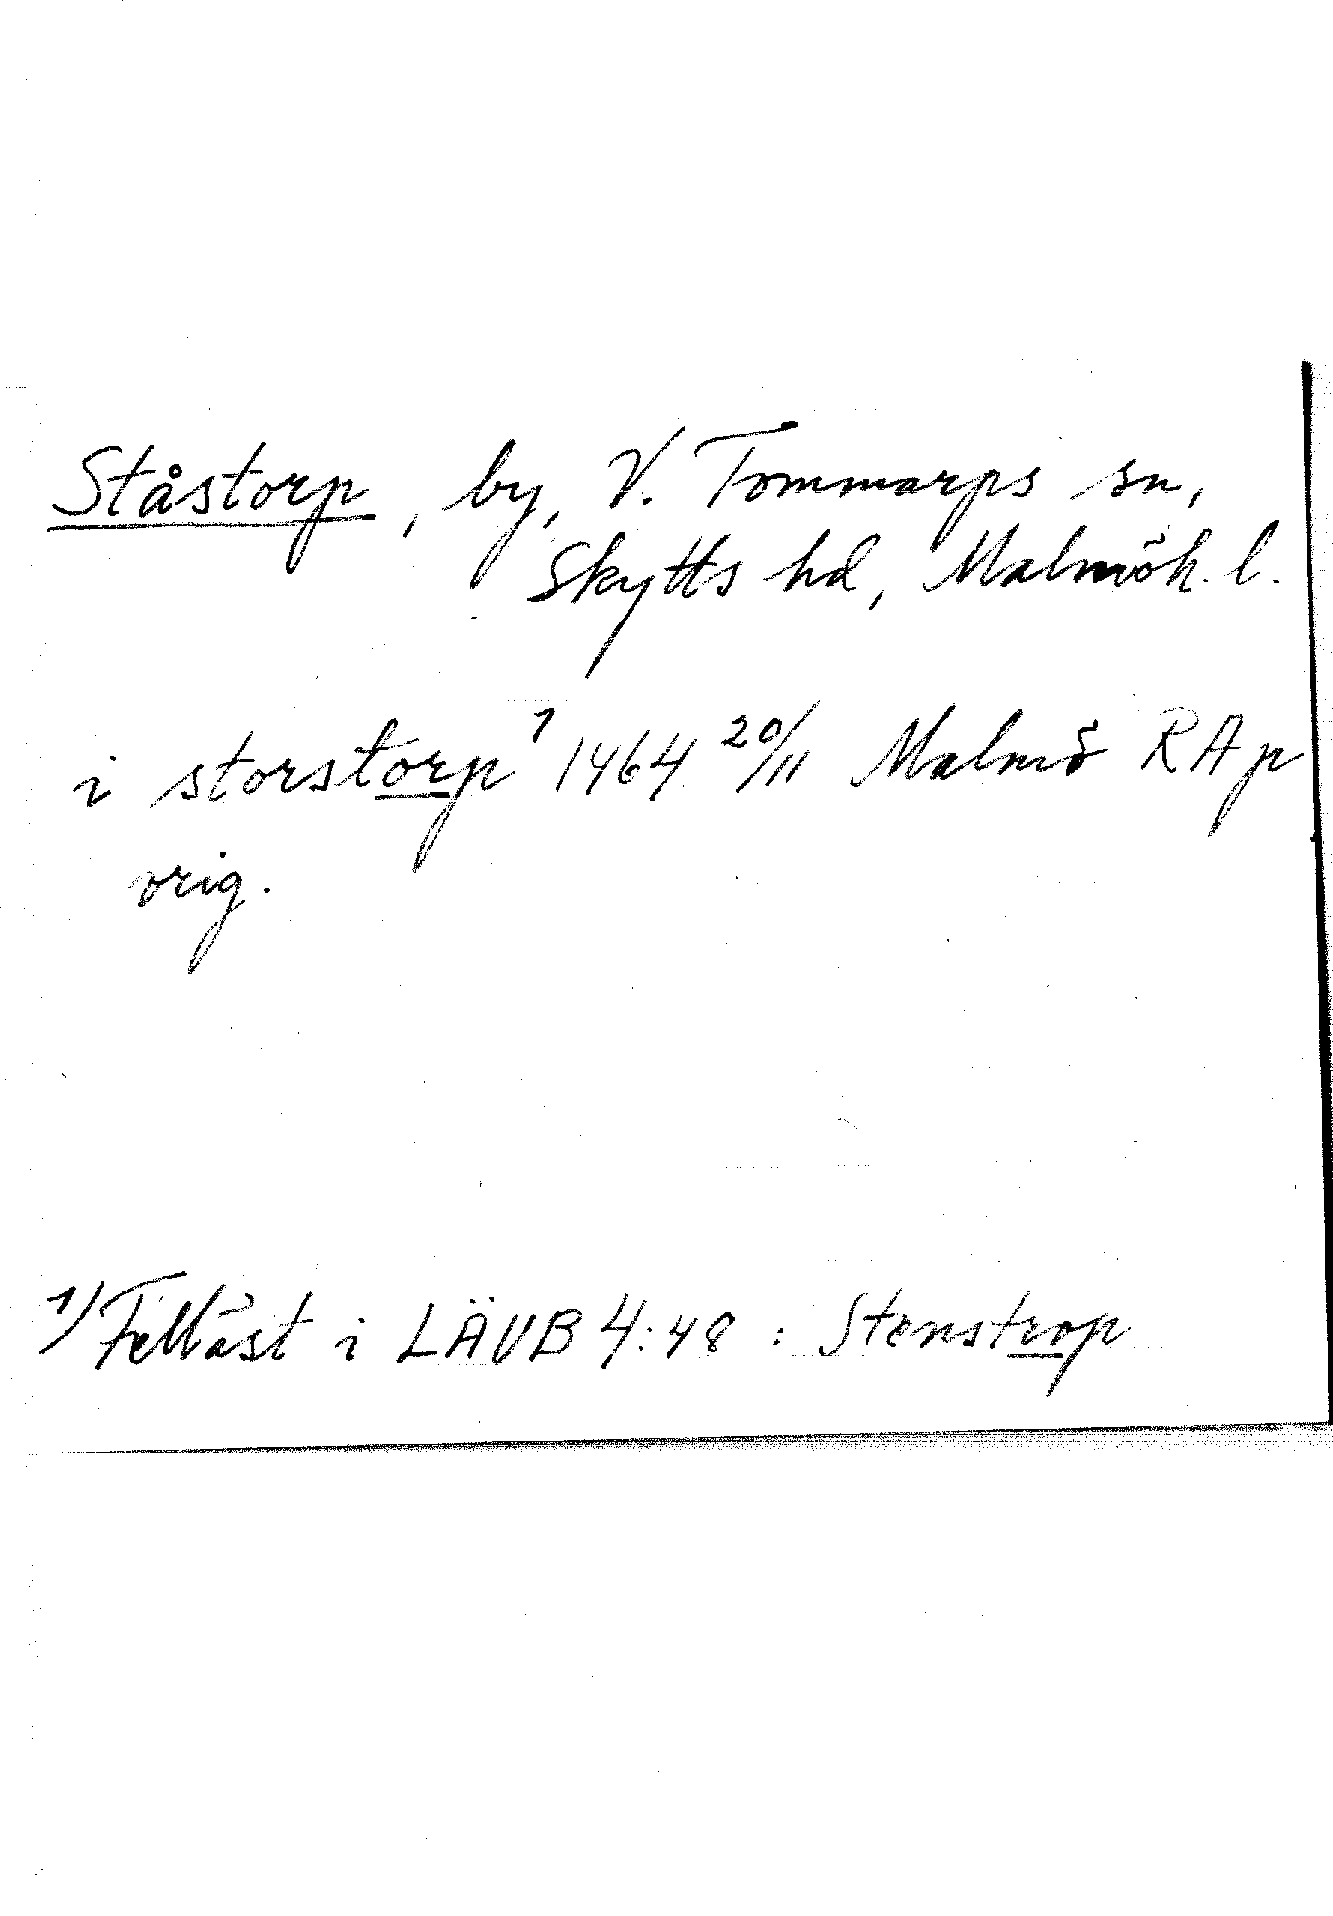 Ståstorp, by, V. Tommarps sn,
Skytts hd, Malmöh. l.
i storstorp 1) 1464 20/11 Malmö RAp
orig.
1) Felläst i LÄUB 4:48 : Stenstrop